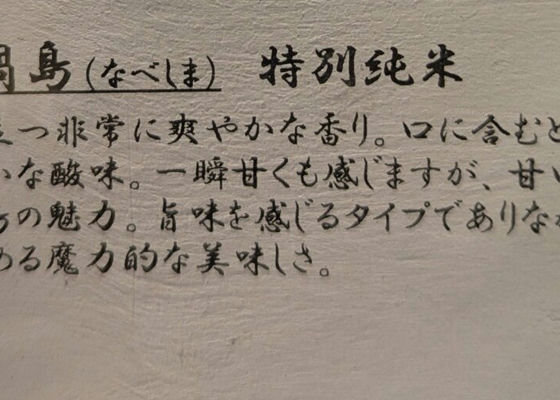 島(なべしま) 特別純米
つ非常に爽やかな香り。口に含むと
な酸味。一瞬甘くも感じますが、甘い
の魅力。旨味を感じるタイプでありな
める魔力的な美味しさ。